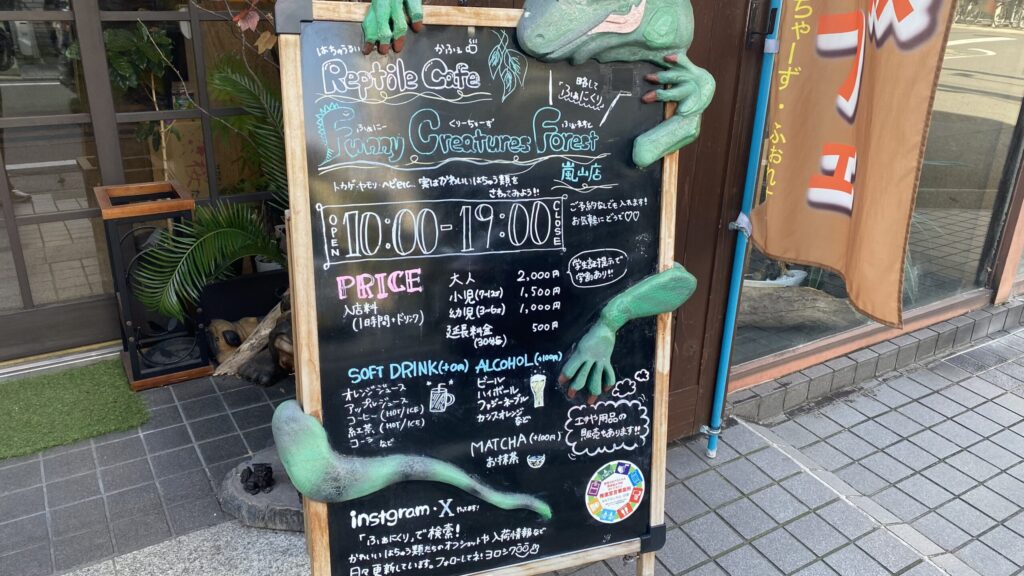 はちゅうるい かふぇ
Reptile Cafe
略して
ふぁにくり
ふぁにー くりーちゃーず ふぉれすと
Funny Creatures Forest
嵐山店
トカゲ・ヤモリ・ヘビetc. 実はかわいいはちゅう類を
さわってみよう!!
OPEN 10:00-19:00 CLOSE
ご予約なしでも入れます!
お気軽にどうぞ♡♡
PRICE
入店料
(1時間+ドリンク)
大人 2,000円
小児(7-12才) 1,500円
幼児(3-6才) 1,000円
延長料金 500円
(30分毎)
学生証提示で
学割あり!!
SOFT DRINK(+0円)
オレンジジュース
アップルジュース
コーヒー(HOT/ICE)
紅茶(HOT/ICE)
コーラ など
ALCOHOL(+100円)
ビール
ハイボール
ファジーネーブル
カシスオレンジ
など
MATCHA(+100円)
お抹茶
エサや用品の
販売もあります!!
instgram・X やってます!
「ふぁにくり」で検索!
かわいいはちゅう類たちのオフショットや入荷情報など
日々更新しています。フォローしてネ!ヨロシク
ちゃーず・ふぉれ